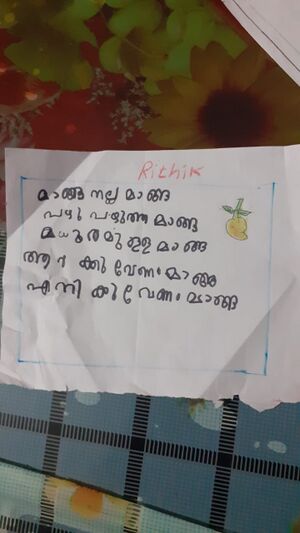 Rithik
മാങ്ങ നല്ല മാങ്ങ
പഴു പഴുത്ത മാങ്ങ
മധുരമുള്ള മാങ്ങ
ആർക്കു വേണം മാങ്ങ
എനിക്കു വേണം മാങ്ങ